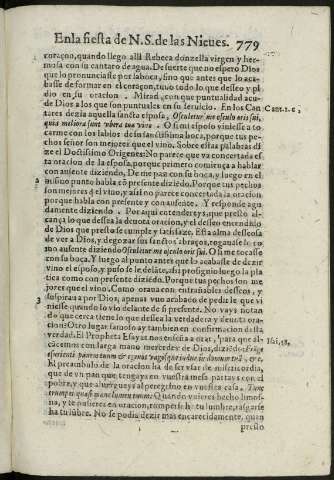 En la fiesta de N.S. de las Nieues. 779
coraçon, quando llego alli Rebeca donzella virgen y her-
mosa con su cantaro de agua. De suerte que no espero Dios
que lo pronunciasse por la boca, sino que antes que lo aca-
basse de formar en el coraçon, tuuo todo lo que desseo y pi-
dio en su oracion. Mirad, con que puntualidad acu-
de Dios a los que son puntuales en su seruicio. En los Can
tares dezia aquella sancta esposa, Osculetur me osculo oris sui,
quia meliora sunt vbera tua vino. O si mi esposo viniesse a to-
carme con los labios de su sanctissima boca, porque tus pe-
chos señor son mejores que el vino. Sobre estas palabras di
ze el Doctissimo Origenes: No parece que va concertada es
ta oracion de la esposa, porque primero comiença a hablar
con ausente diziendo, De me paz con su boca, y luego en a
mismo punto habla cõ presente diziẽdo, Porque tus pechos
son mejores q̃ el vino, y assi no parece concertada la oracion
porque habla con presente y con ausente. Y responde agu-
damente diziendo, Por aqui entenderys, que presto al-
cança lo que dessea la deuota oracion, y el desseo encendido
de Dios que presto se cumple y satisfaze. Esta alma desseosa
de ver a Dios, y de gozar sus sanctos abraços, rogaua se lo co
mo ausente diziendo Osculetur me osculo oris sui. O si me tocasse
con su boca. Y luego al punto antes que lo acabasse de dezir
vino el esposo, y puso se le delãte, assi prosiguio luego la pla
tica como con presente diziẽdo, Porque tus pechos son me
jores que el vino. Como oraua con entrañables desseos, y
suspiraua por Dios, apenas vuo acabado de pedir le que vi
niesse quando lo vio delante de si presente. No vays notan
do que cerca tiene lo que dessea la verdadera y deuota ora-
cion? Otro lugar famoso ay tambien en confirmacion desta
verdad. El Propheta Esayas nos enseña a orar, para que al-
cãcemos con larga mano mercedes de Dios, diziẽdo: Frãge
esurienti panem tuum & egenos vagosque induc in domum tuã, &c.
El preambulo de la oracion ha de ser vsar de misericordia,
que de vn pan que tengays en vuestra mesa partays con el
pobre, y que aluergueys al peregrino en vuestra casa. Tunc
rumpet quasi mane lumen tuum. Quando vuieres hecho limos-
na, y te pusieres en oracion, romperse ha tu lumbre, rasgarse
ha tu lũbre. No se podia dezir mas encarecidamente, quan
presto
Cant. 1. c,
Isai, 58,